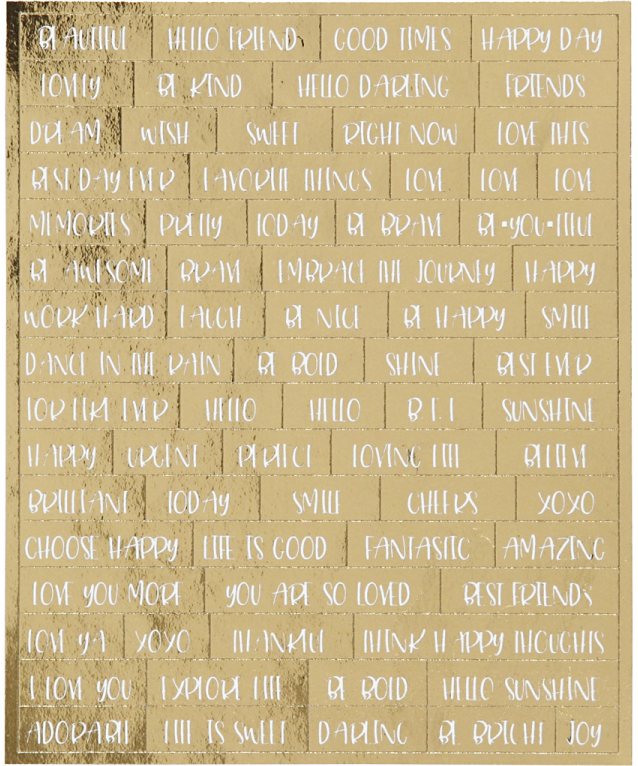 BEAUTIFUL HELLO FRIEND GOOD TIMES HAPPY DAY
LOVELY BE KIND HELLO DARLING FRIENDS
DREAM WISH SWEET RIGHT NOW LOVE THIS
BEST DAY EVER FAVORITE THINGS LOVE LOVE LOVE
MEMORIES PRETTY TODAY BE BRAVE BE•YOU•TIFUL
BE AWESOME BRAVE EMBRACE THE JOURNEY HAPPY
WORK HARD LAUGH BE NICE BE HAPPY SMILE
DANCE IN THE RAIN BE BOLD SHINE BEST EVER
FOR LIKE EVER HELLO HELLO B.F.F SUNSHINE
HAPPY URGENT PERFECT LOVING LIFE BELIEVE
BRILLIANT TODAY SMILE CHEERS XOXO
CHOOSE HAPPY LIFE IS GOOD FANTASTIC AMAZING
LOVE YOU MORE YOU ARE SO LOVED BEST FRIENDS
LOVE YA XOXO THANKFUL THINK HAPPY THOUGHTS
I LOVE YOU EXPLORE LIFE BE BOLD HELLO SUNSHINE
ADORABLE LIFE IS SWEET DARLING BE BRIGHT JOY